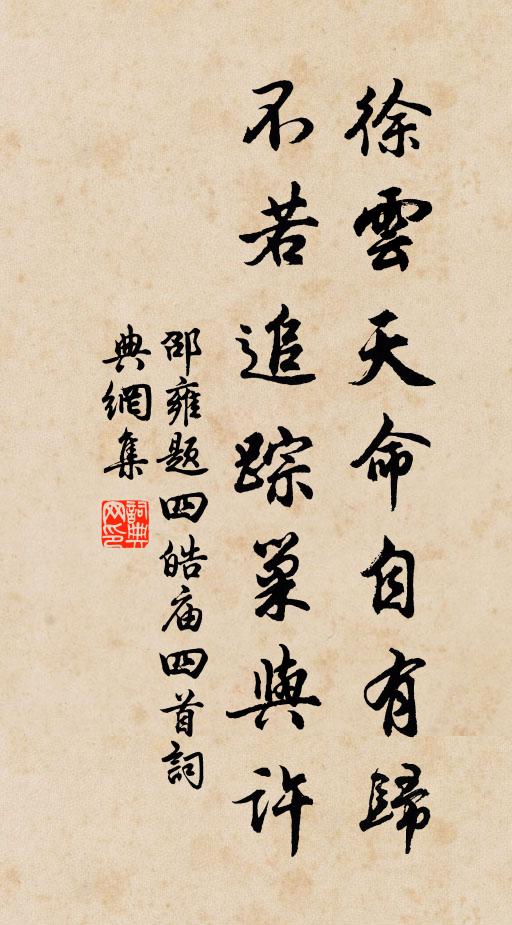 徐雲天命自有歸
不若追踪巢與許
邵雍題四皓庙四首詞
典網集
詞典
网印